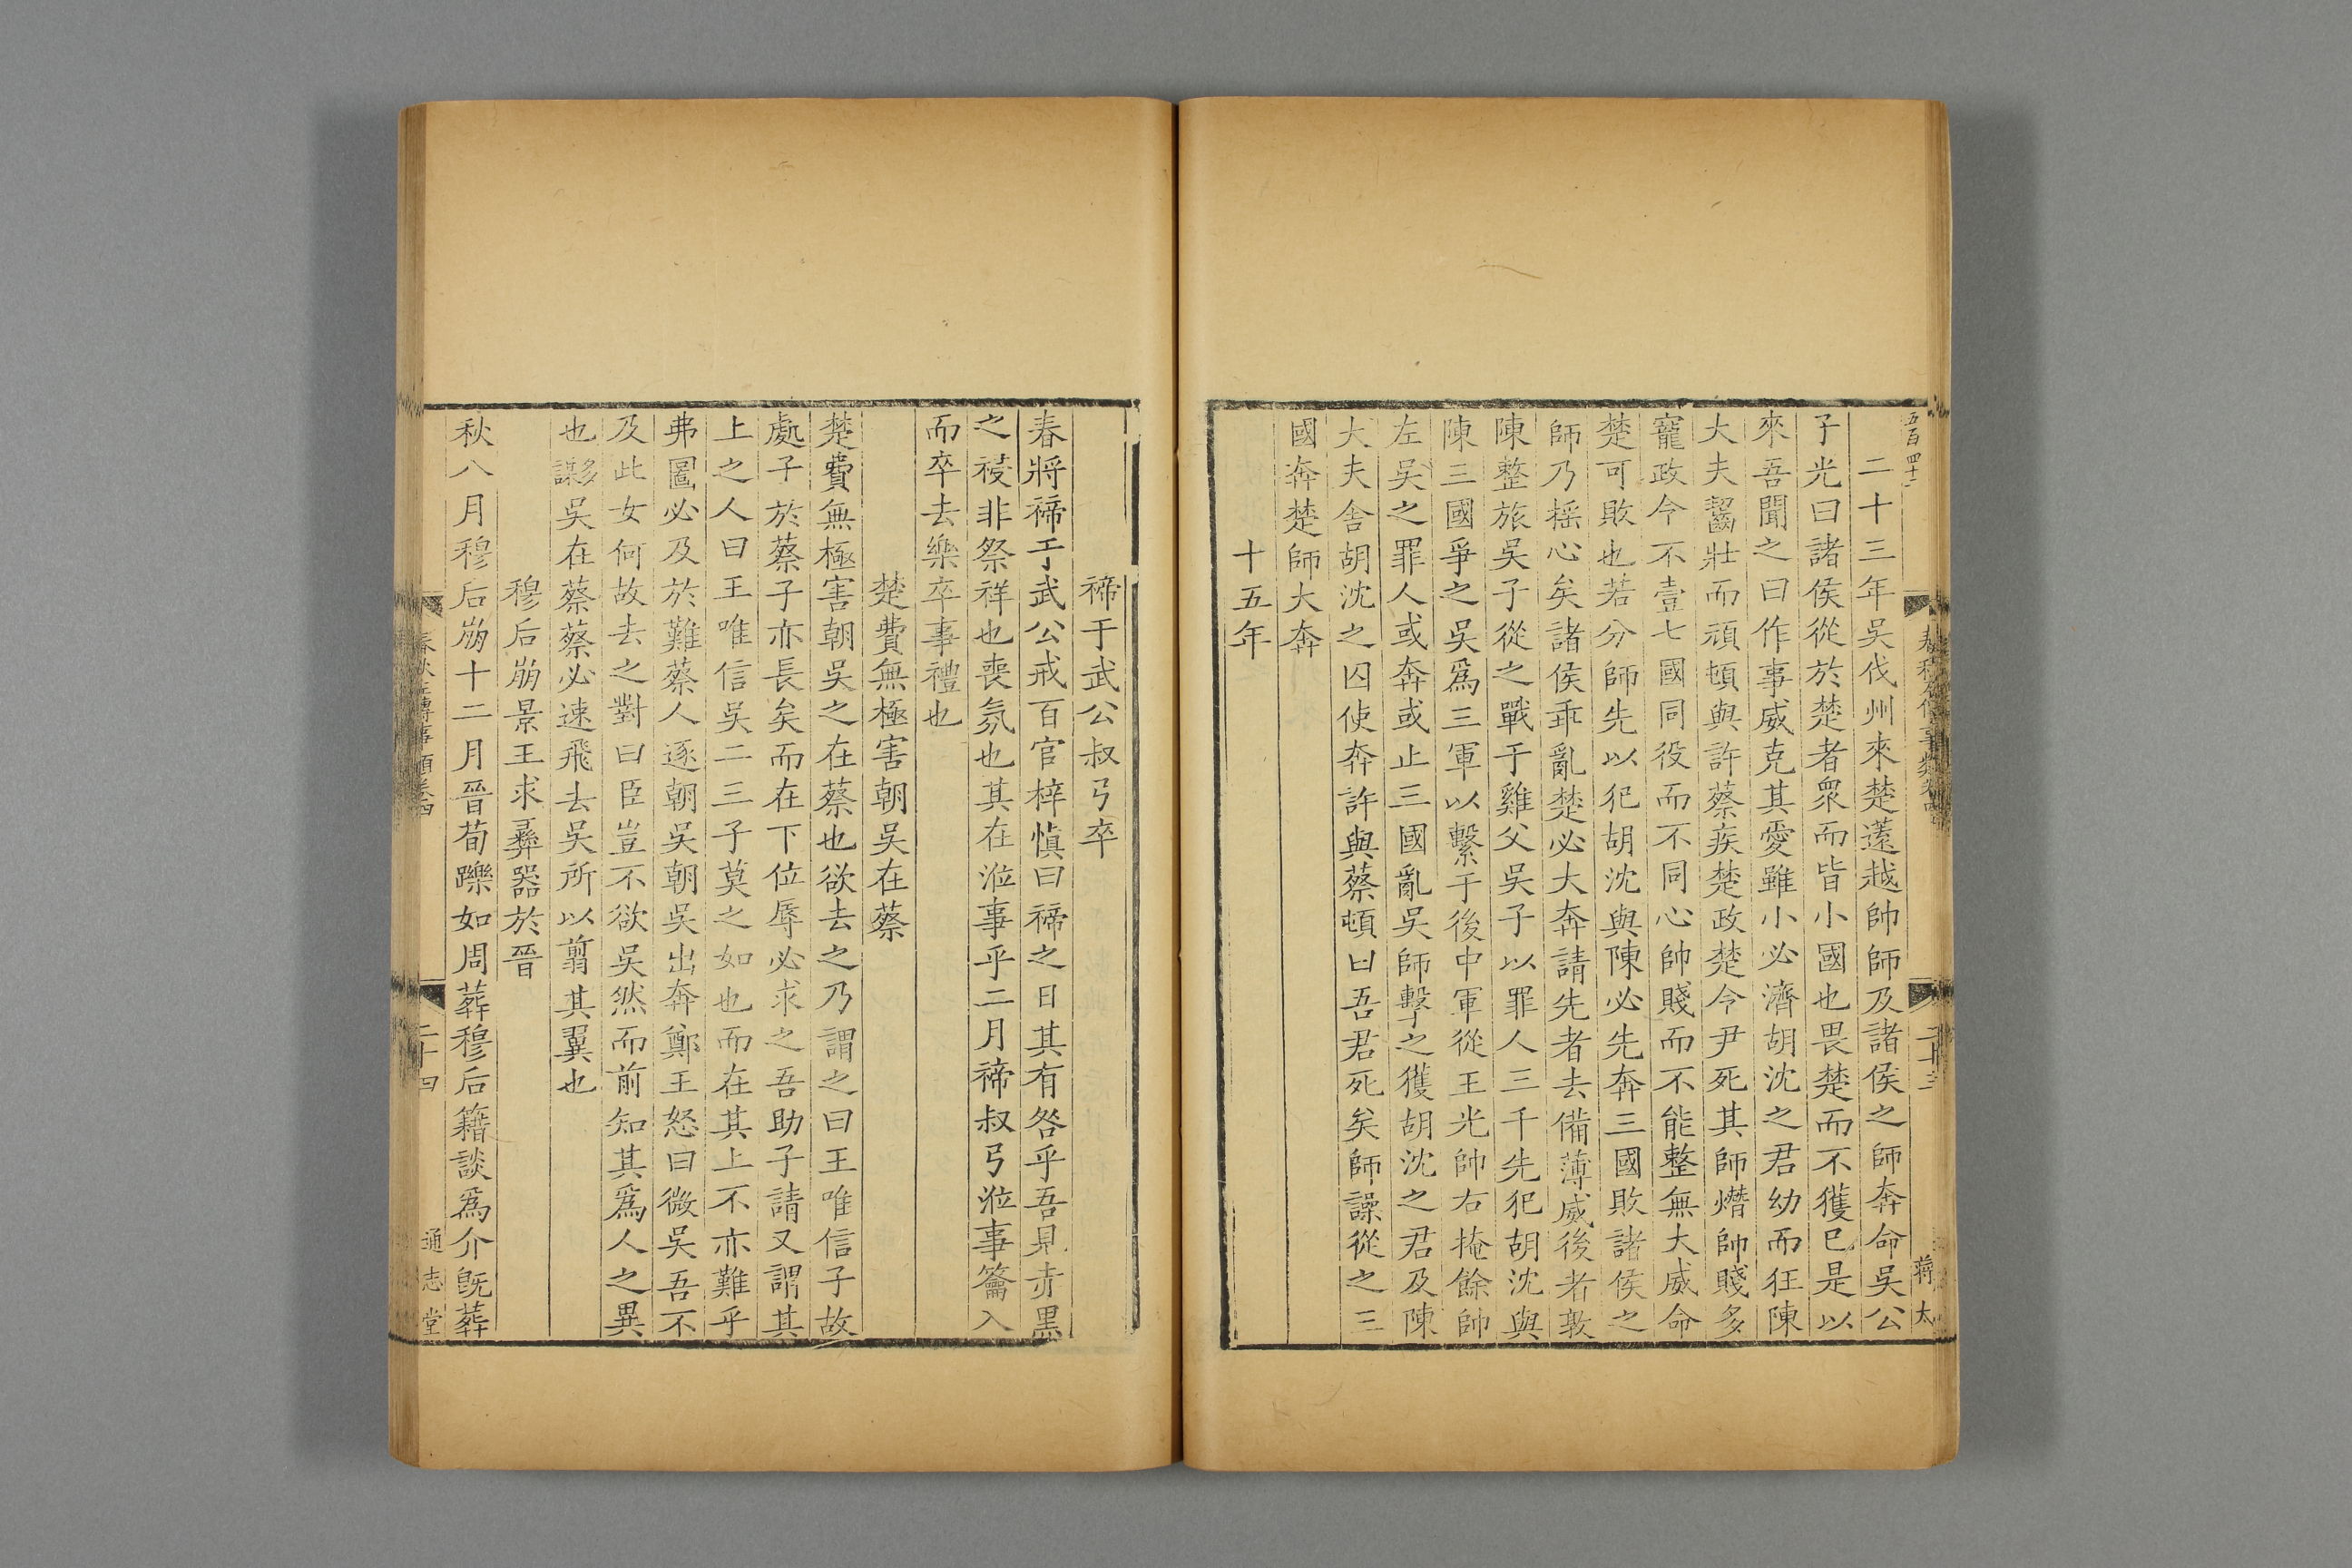 五百四十二
二十三年吳伐州來楚薳越帥師及諸侯之師奔命吳公
子光曰諸侯從於楚者衆而皆小國也畏楚而不獲已是以
來吾聞之曰作事威克其愛雖小必濟胡沈之君幼而狂陳
大夫齧壯而頑頓與許蔡疾楚政楚令尹死其師熸帥賤多
寵政令不壹七國同役而不同心帥賤而不能整無大威命
楚可敗也若分師先以犯胡沈與陳必先奔三國敗諸侯之
師乃搖心矣諸侯乖亂楚必大奔請先者去備薄威後者敦
陳整旅吳子從之戰于雞父吳子以罪人三千先犯胡沈與
陳三國爭之吳爲三軍以繫于後中軍從王光帥右掩餘帥
左吳之罪人或奔或止三國亂吳師擊之獲胡沈之君及陳
大夫舍胡沈之囚使奔許與蔡頓曰吾君死矣師譟從之三
國奔楚師大奔
十五年
禘于武公叔弓卒
春將禘于武公戒百官梓慎曰禘之日其有咎乎吾見赤黑
之祲非祭祥也喪氛也其在涖事乎二月禘叔弓涖事籥入
而卒去樂卒事禮也
楚費無極害朝吳在蔡
楚費無極害朝吳之在蔡也欲去之乃謂之曰王唯信子故
處子於蔡子亦長矣而在下位辱必求之吾助子請又謂其
上之人曰王唯信吳二三子莫之如也而在其上不亦難乎
弗圖必及於難蔡人逐朝吳朝吳出奔鄭王怒曰微吳吾不
及此女何故去之對曰臣豈不欲吳然而前知其爲人之異
也多謀吳在蔡蔡必速飛去吳所以翦其翼也
穆后崩景王求彝器於晉
秋八月穆后崩十二月晉荀躒如周葬穆后籍談爲介旣葬
春秋左傳事類卷四 二十四 通志堂